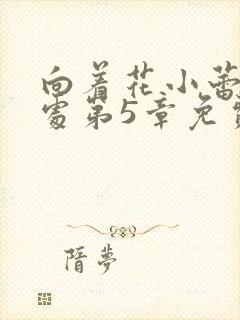 向着花小蕾
处第5章免费
隋夢